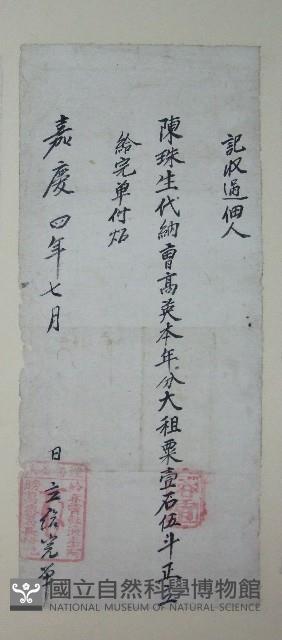 記収過佃人
陳珠生代納曹高英本年分大租粟壹石伍斗正立
給完单付炤
嘉慶四年七月　日立給完单
國立自然科學博物館
NATIONAL MUSEUM OF NATURAL SCIENCE